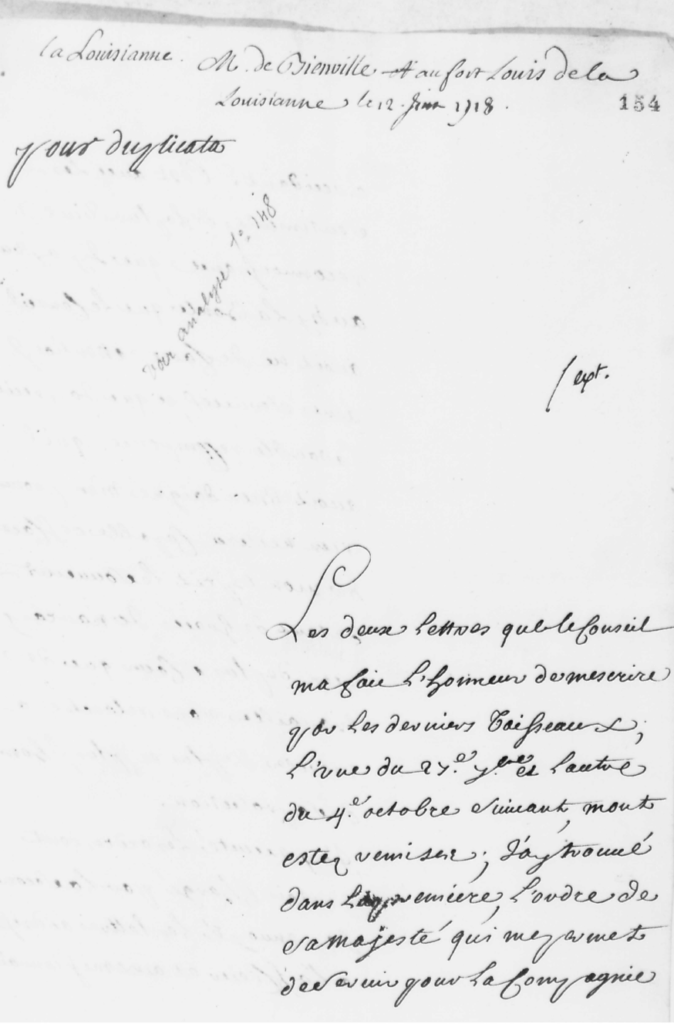 la Louisianne. M. de Bienville +. au fort Louis de la
Louisianne le 12. Juin 1718.
154
pour duplicata
voir analyse fo 148
Sept.
Les deux Lettres que le Conseil
ma fait L'honneur de mescrire
par Les derniers Vaisseaux;
L'vne du 27.e 7.bre et Lautre
du 4.e octobre Suiuant, mont
esteq remises; J'ay trouué
dans La premiere, L'ordre de
Sa majesté qui me permet
de Seruir pour La Compagnie